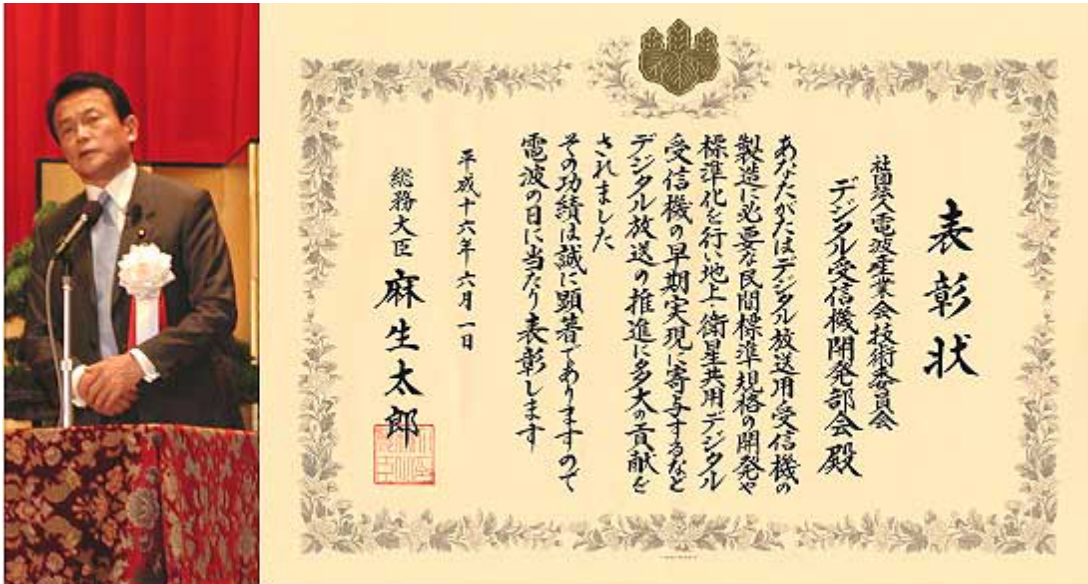 表彰状
社団法人電波産業会技術委員会
デジタル受信機開発部会殿
あなたがたはデジタル放送用受信機の
製造に必要な民間標準規格の開発や
標準化を行い地上・衛星共用デジタル
受信機の早期実現に寄与するなど
デジタル放送の推進に多大の貢献を
されました
その功績は誠に顕著でありますので
電波の日に当たり表彰します
平成十六年六月一日
総務大臣 麻生太郎